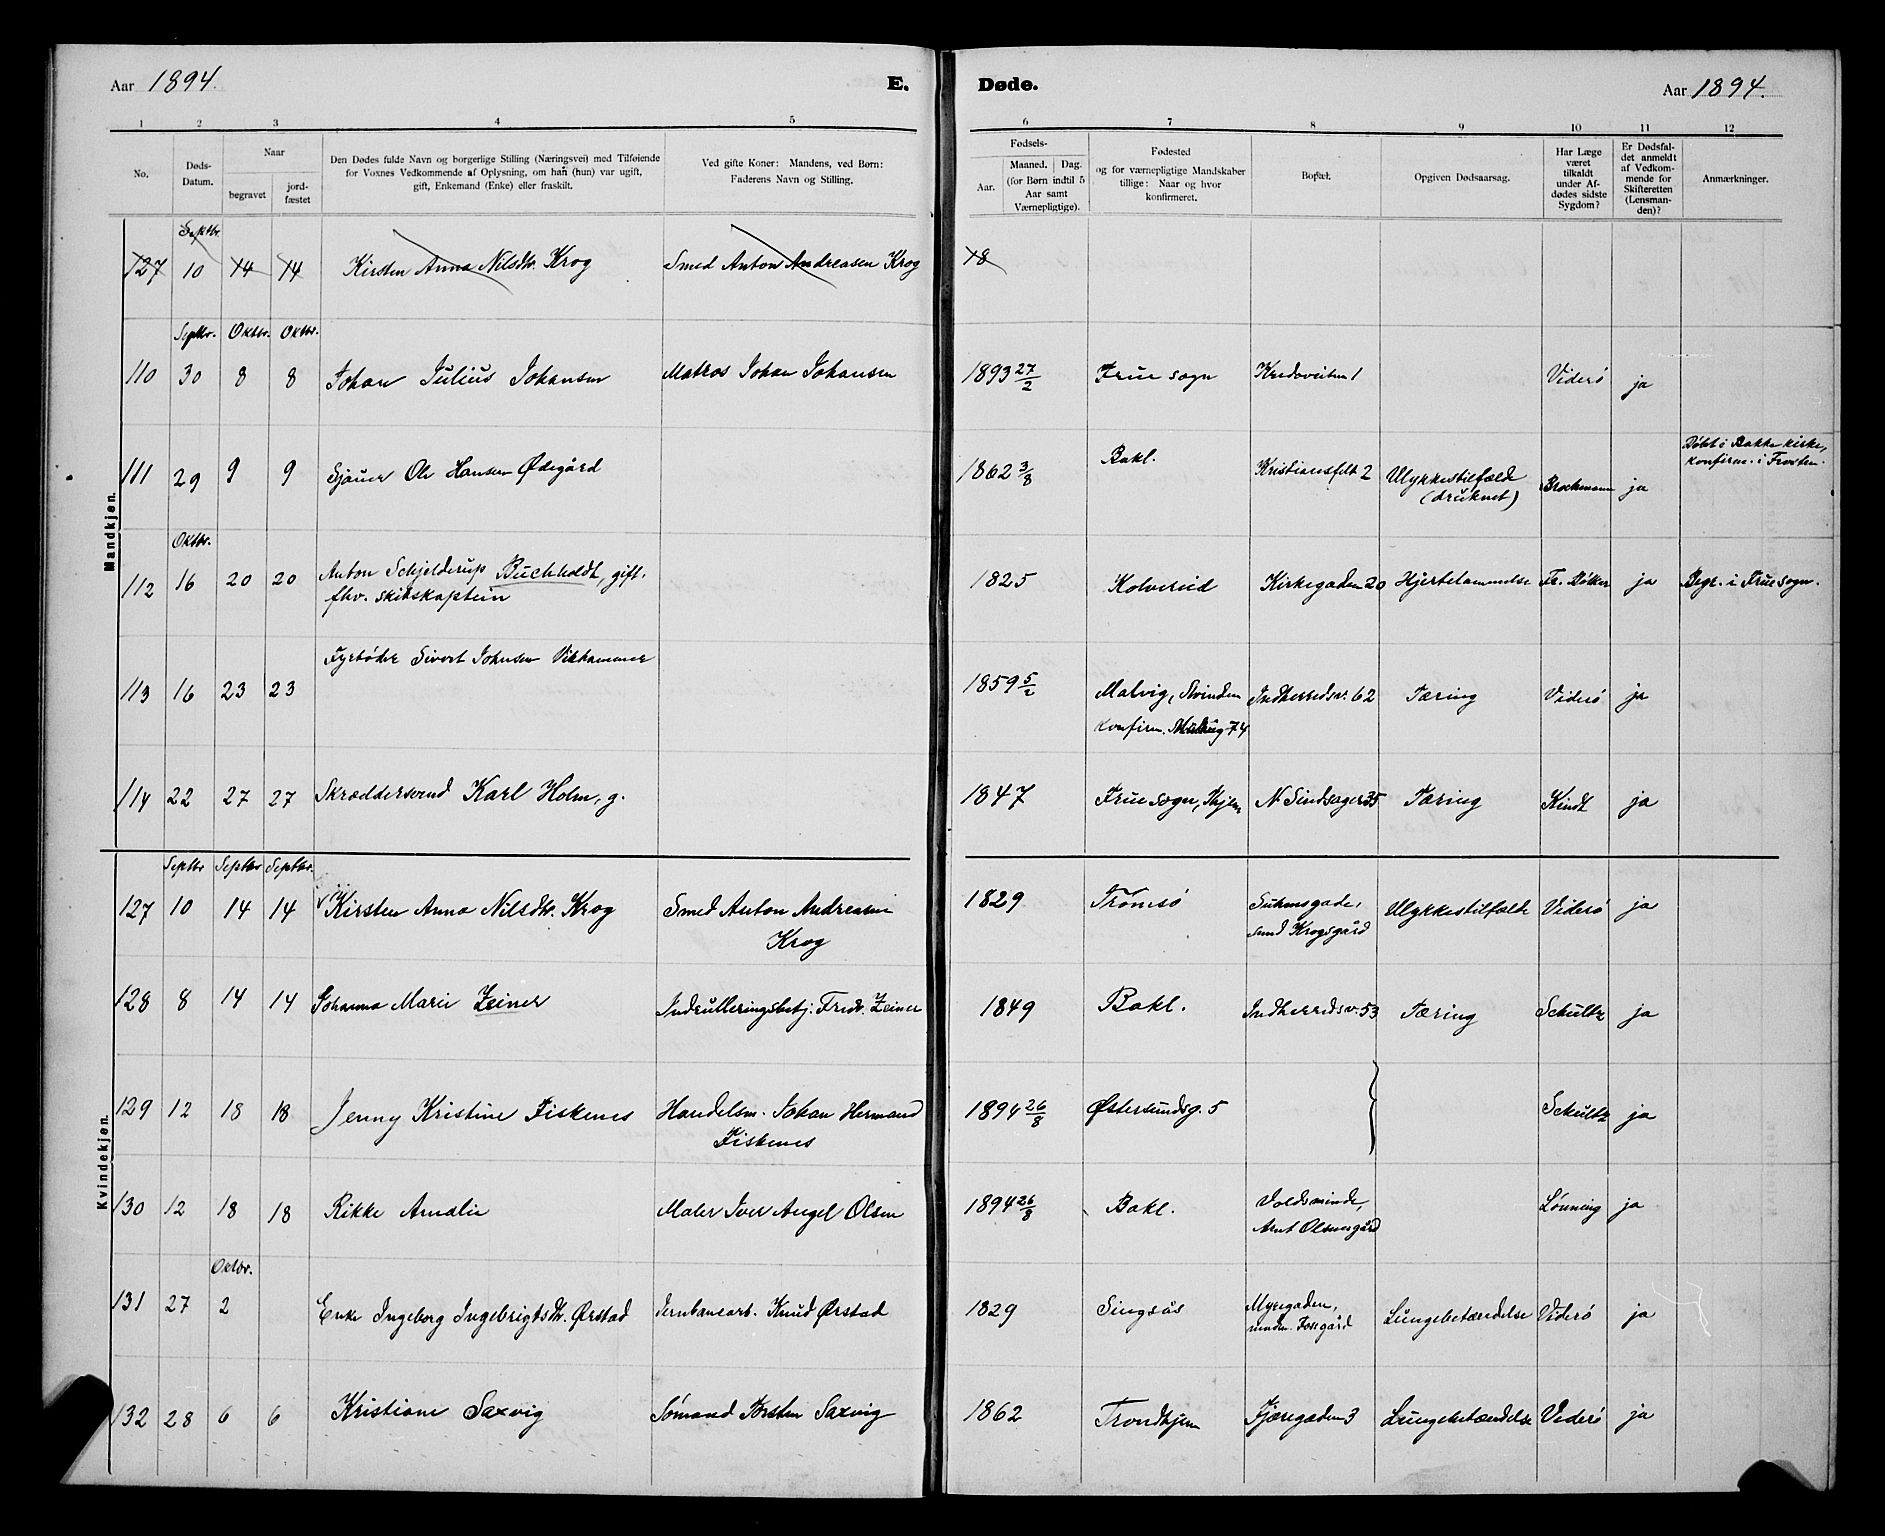 Aar 1894. E. Døde. Aar 1894.
1 2 3 4 5 6 7 8 9 10 11 12
No.
Døds-
Datum.
Naar
begravet
jord-
fæstet
Den Dødes fulde Navn og borgerlige Stilling (Næringsvei) med Tilføiende
for Voxnes Vedkommende af Oplysning, om han (hun) var ugift,
gift, Enkemand (Enke) eller fraskilt.
Ved gifte Koner: Mandens, ved Børn:
Faderens Navn og Stilling.
Fødsels-
Aar.
Maaned. Dag.
(for Børn indtil 5
Aar samt
Værnepligtige).
Fødested
og for værnepligtige Mandskaber
tillige: Naar og hvor
konfirmeret.
Bopæl.
Opgiven Dødsaarsag.
Har Læge
været
tilkaldt
under Af-
dødes sidste
Sygdom?
Er Dødsfal-
det anmeldt
af Vedkom-
mende for
Skifteretten
(Lensman-
den)?
Anmærkninger.
Mandkjøn.
Septbr.
127 10 14 14 Kirsten Anna Nilsdtr. Krog Smed Anton Andreasen Krog 18
Septbr. Oktbr. Oktbr.
110 30 8 8 Johan Julius Johansen Matros Johan Johansen 1893 27/2 Frue sogn 1 Viderö ja
111 29 9 9 Sjauer Ole Hansen Ødegård 1862 3/8 Bakl. Kristiansfelt 2 Ulykkestilfælde
(druknet) Brochmann ja Døbt i Bakke kirke,
konfirm. i Frosten.
Oktbr.
112 16 20 20 Anton Schjelderup Buchholdt, gift.
fhv. skibskaptein 1825 Kolvereid Kirkegaden 20 Hjertelammelse Fr. ja Begr. i Frue sogn.
113 16 23 23 Fyrbøder Sivert Johnsen Vikhammer 1859 5/2 Malvig, Strinden
konfirm. 74 Indherredsv. 62 Tæring Viderö ja
114 22 27 27 Skræddersvend Karl Holm, g. 1847 Frue sogn, N. 35 Tæring Kindt ja
Kvindekjøn.
Septbr Septbr Septbr.
127 10 14 14 Kirsten Anna Nilsdtr. Krog Smed Anton Andreasen
Krog 1829 Tromsö
smed Krogsgård Ulykkestilfælde Viderö ja
128 8 14 14 Johanna Marie Zeiner Indrulleringsbetj. Fredr. Zeiner 1849 Bakl. Indherredsv. 53 Tæring Schultz ja
129 12 18 18 Jenny Kristine Fiskenes Handelsm. Johan Hermand
Fiskenes 1894 26/8 Østersundsg. 5 Schultz ja
130 12 18 18 Rikke Amalie Maler Iver Angel Olsen 1894 26/8 Bakl. Voldsminde,
Arnt Olsensgård Lönning ja
Oktbr.
131 27 2 Enke Ingeborg Ingebrigtsdtr. Ørstad Jernbanearb. Knud Ørstad 1829 Singsås Myregaden,
Lungebetændelse Viderö ja
132 28 6 6 Kristiane Saxvig Sömand Torsten Saxvig 1862 Trondhjem Fjæregaden 3 Lungebetændelse Viderö ja